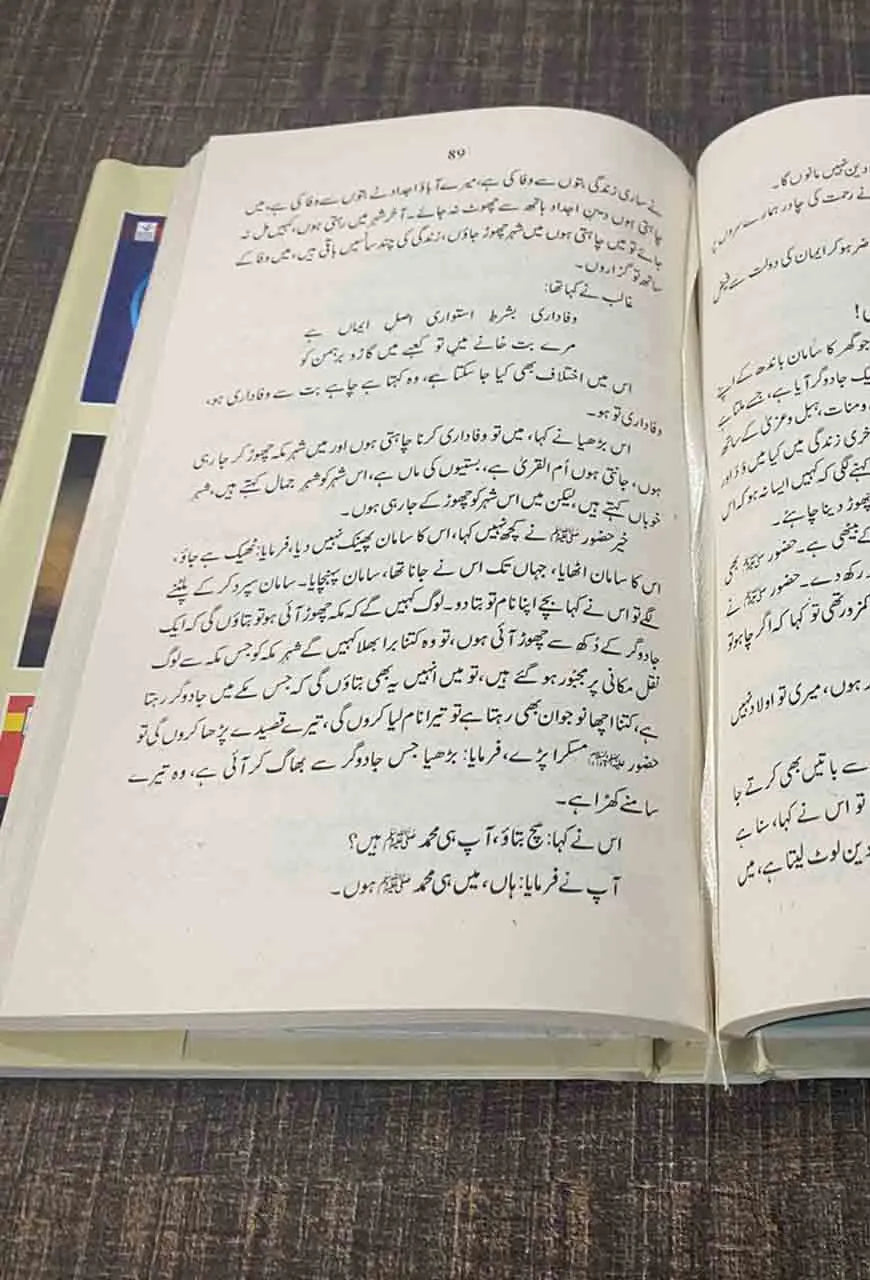 89
نے ساری زندگی بتوں سے وفا کی ہے، میرے آباؤ اجداد نے بتوں سے وفا کی ہے، میں
چاہتی ہوں دینِ اجداد ہاتھ سے چھوٹ نہ جائے۔ آخر شہر میں رہتی ہوں، کہیں مل نہ
جائے تو میں چاہتی ہوں میں شہر چھوڑ جاؤں، زندگی کی چند سانسیں باقی ہیں، میں وفا کے
ساتھ تو گزاروں۔
غالب نے کہا تھا:
وفاداری بشرط استواری اصل ایماں ہے
مرے بت خانے میں تو کعبے میں گاڑو برہمن کو
اس میں اختلاف بھی کیا جا سکتا ہے، وہ کہتا ہے چاہے بت سے وفاداری ہو،
وفاداری تو ہو۔
اس بڑھیا نے کہا، میں تو وفاداری کرنا چاہتی ہوں اور میں شہر مکہ چھوڑ کر جا رہی
ہوں، جانتی ہوں اُم القریٰ ہے، بستیوں کی ماں ہے، اس شہر کو شہرِ جمال کہتے ہیں، شہرِ
خوباں کہتے ہیں لیکن میں اس شہر کو چھوڑ کے جا رہی ہوں۔
خیر حضور ﷺ نے کچھ نہیں کہا، اس کا سامان پھینک نہیں دیا، فرمایا: ٹھیک ہے جاؤ،
اس کا سامان اٹھایا، جہاں تک اس نے جانا تھا، سامان پہنچایا۔ سامان سپرد کر کے پلٹنے
لگے تو اس نے کہا بچے اپنا نام تو بتا دو۔ لوگ کہیں گے کہ مکہ چھوڑ آئی ہو تو بتاؤں گی کہ ایک
جادوگر کے دُکھ سے چھوڑ آئی ہوں، تو وہ کتنا برا بھلا کہیں گے شہرِ مکہ کو جس مکہ سے لوگ
نقل مکانی پر مجبور ہو گئے ہیں، تو میں انہیں یہ بھی بتاؤں گی کہ جس مکے میں جادوگر رہتا
ہے، کتنا اچھا نوجوان بھی رہتا ہے تو تیرا نام لیا کروں گی، تیرے قصیدے پڑھا کروں گی تو
حضور ﷺ مسکرا پڑے، فرمایا: بڑھیا جس جادوگر سے بھاگ کر آئی ہے، وہ تیرے
سامنے کھڑا ہے۔
اس نے کہا: سچ بتاؤ، آپ ہی محمد ﷺ ہیں؟
آپ نے فرمایا: ہاں، میں ہی محمد ﷺ ہوں۔
دین نہیں مانوں گا۔
نے رحمت کی چادر ہمارے سروں پر
ضر ہو کر ایمان کی دولت سے فیض
جو گھر کا سامان باندھ کے اپنے
یک جادوگر آیا ہے، جسے ملتا ہے
و منات، ہبل و عزیٰ کے ساتھ
خری زندگی میں کیا میں
کہنے لگی کہ کہیں ایسا نہ ہو کہ اس
چھوڑ دینا چاہئے۔
کے بیٹھی ہے۔ حضور ﷺ بھی
رکھ دے۔ حضور ﷺ نے
کمزور تھی تو کہا کہ اگر چاہو تو
ہوں، میری تو اولاد نہیں
سے باتیں بھی کرتے جا
تو اس نے کہا، سنا ہے
دین لوٹ لیتا ہے، میں